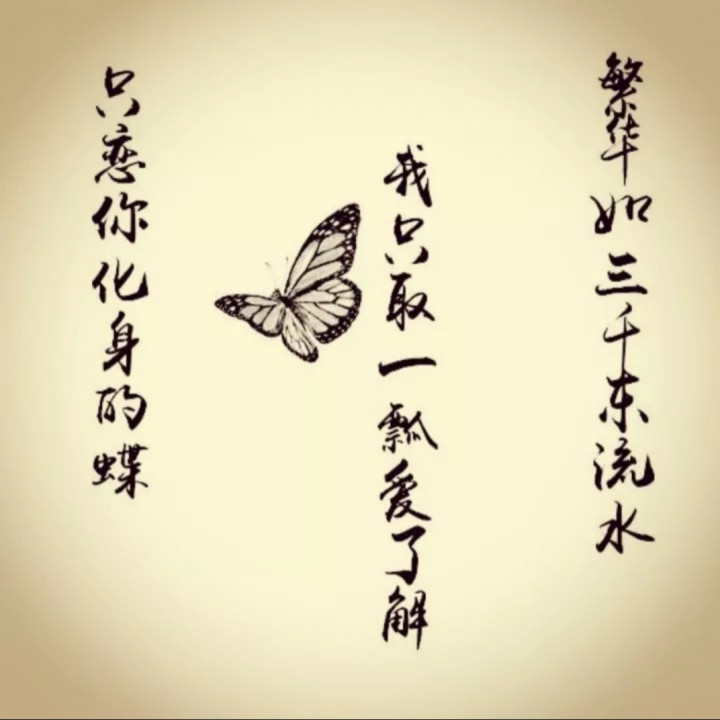 繁华如三千东流水
我只取一瓢爱了解
只恋你化身的蝶